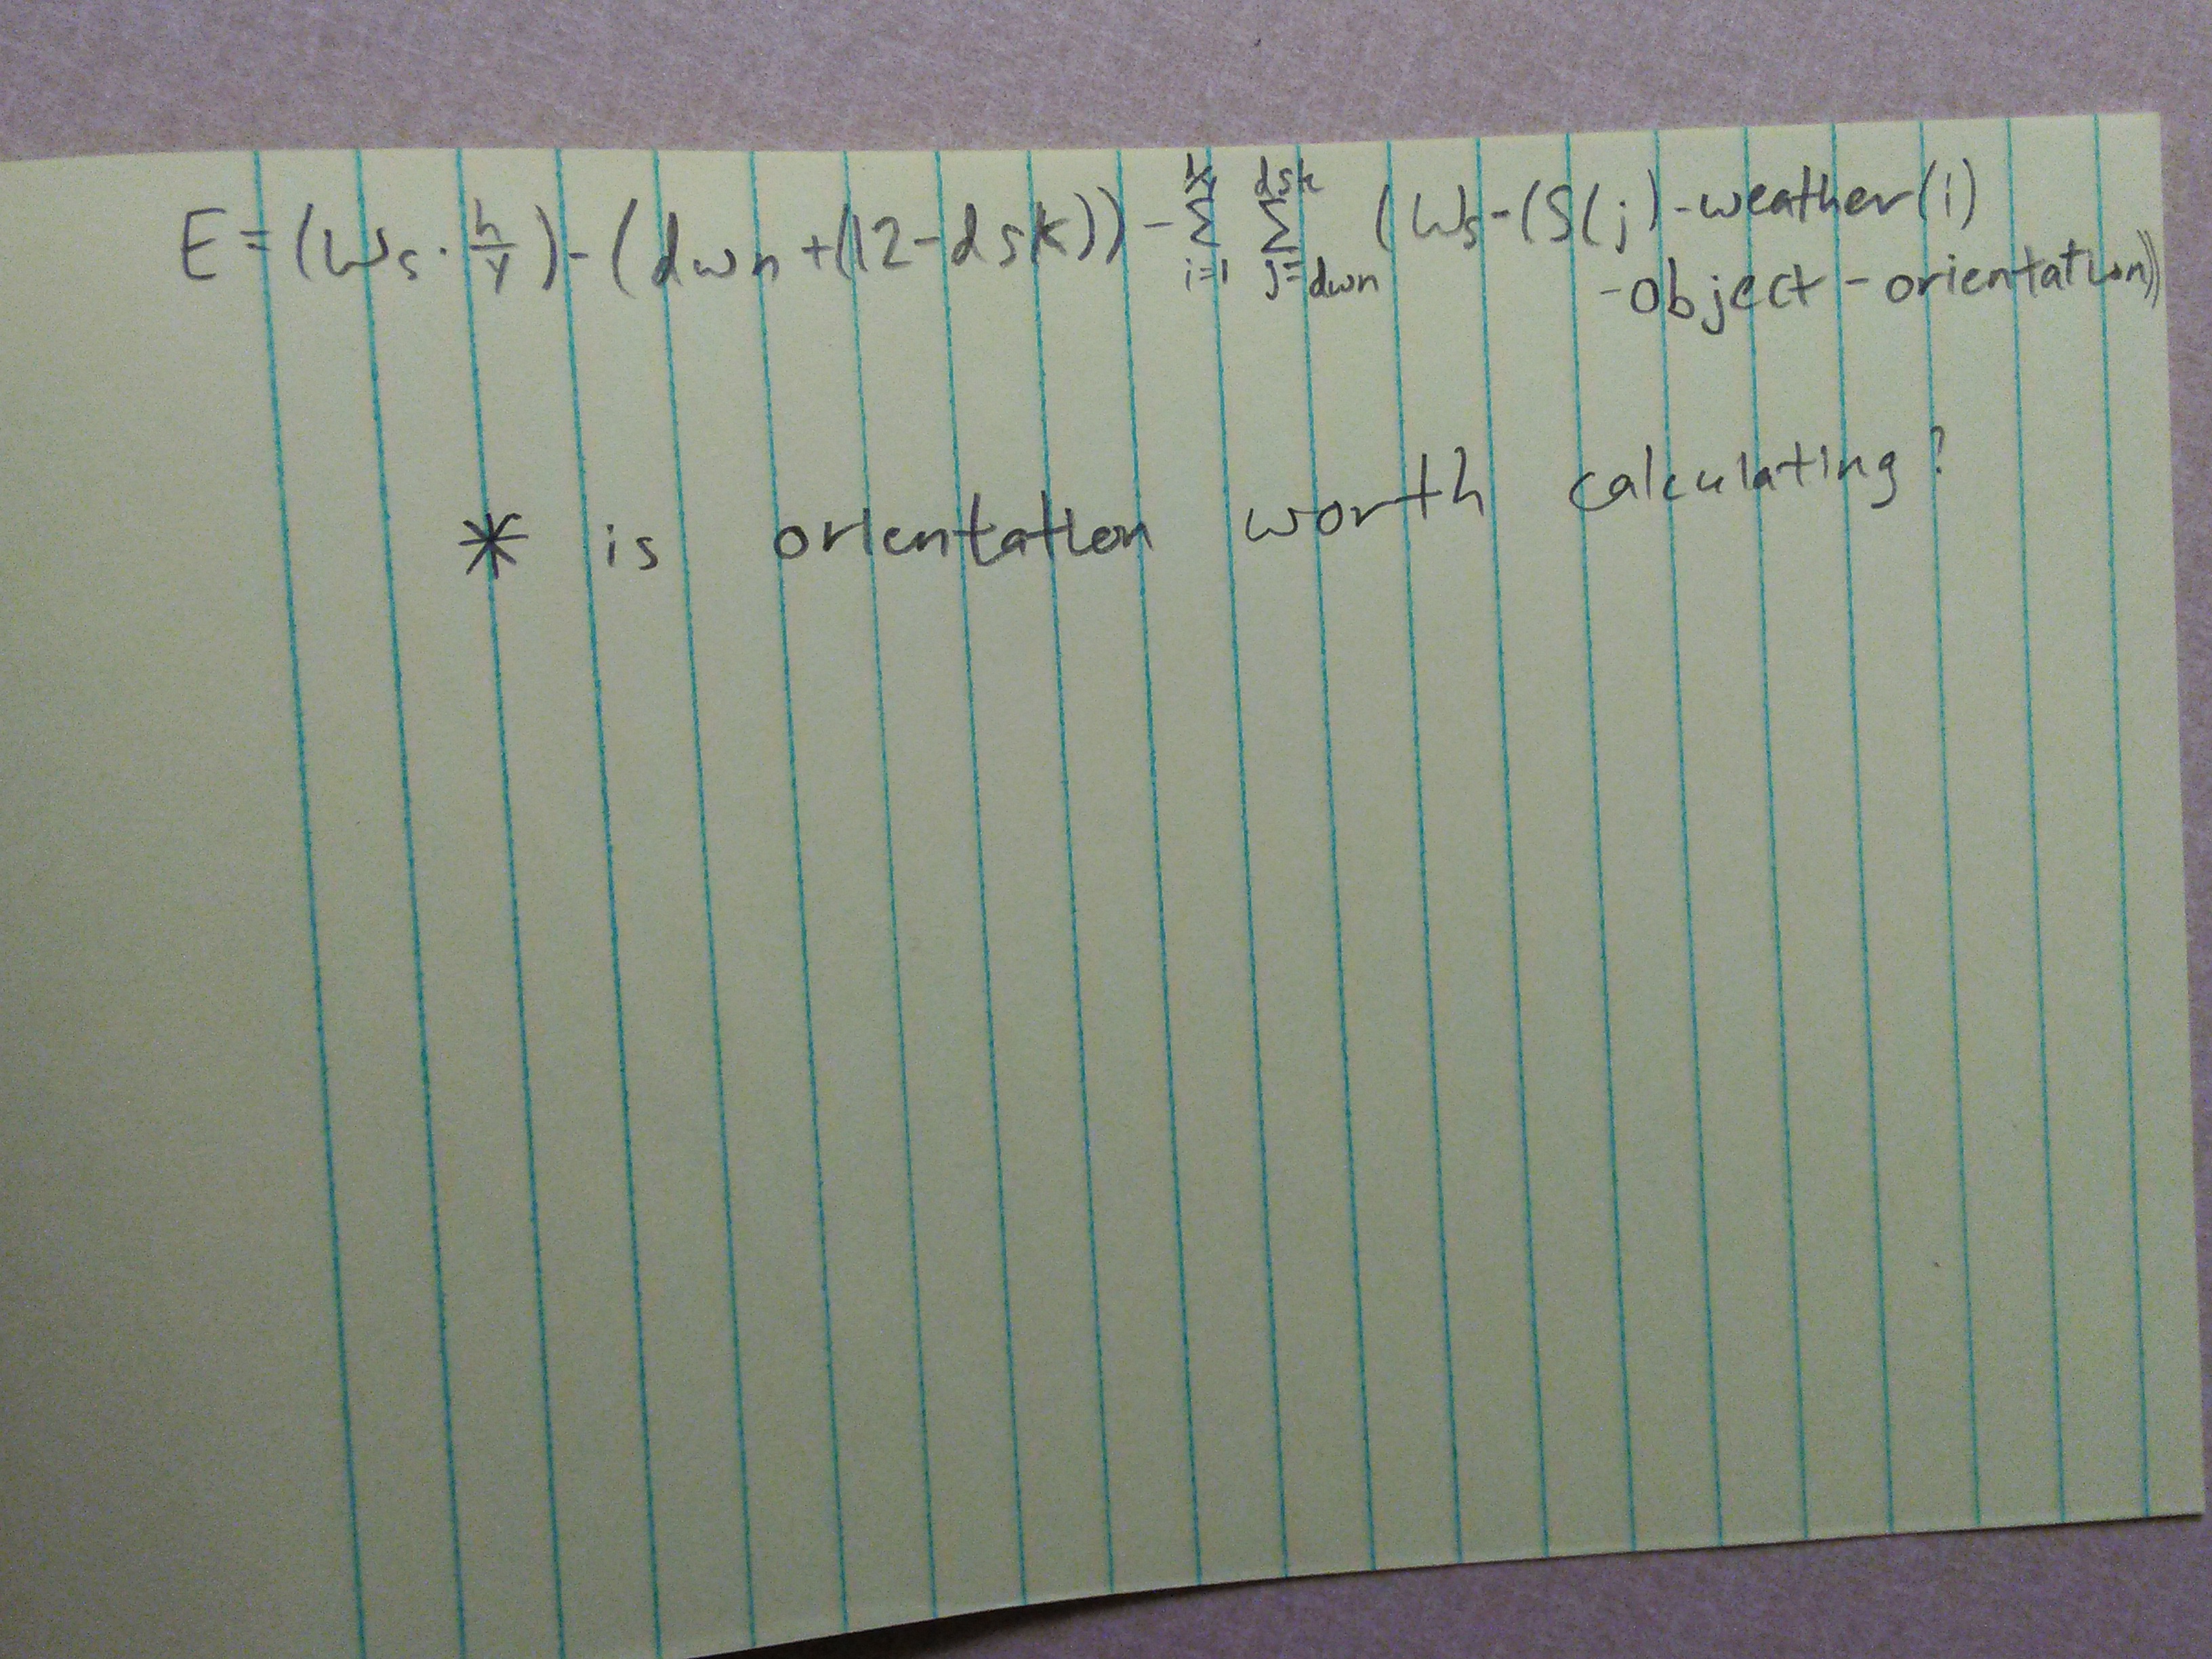 E = (Ws · h/y) - (dwn + (12 - dsk)) - Σ i=1 Σ dsk j=dwn (Ws - (S(j) - weather(i)
- object - orientation))
* is orientation worth calculating?